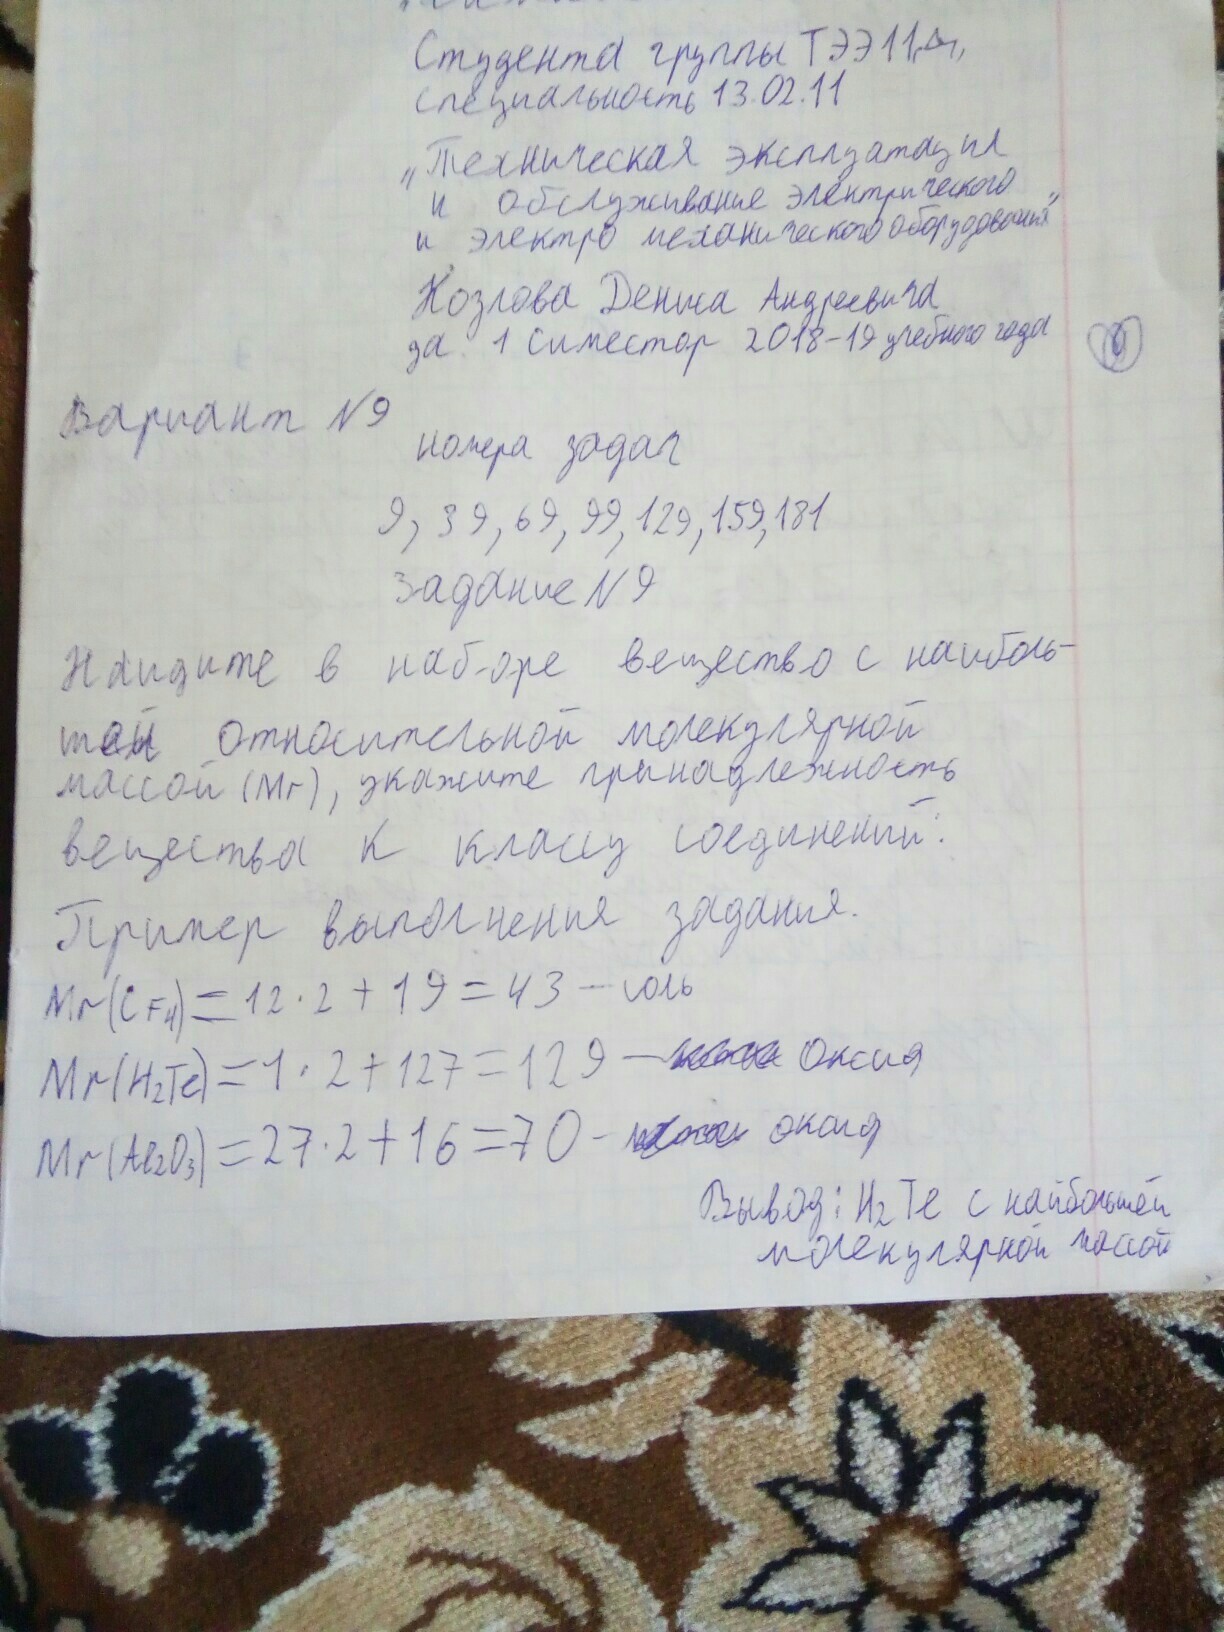 Студента группы ТЭЭ11Д,
специальность 13.02.11
„Техническая эксплуатация
и обслуживание электрического
и электро механического оборудования"
Козлова Дениса Андреевича
за 1 Симестор 2018-19 учебного года
Вариант №9
номера задач
9, 39, 69, 99, 129, 159, 181
Задание №9
Найдите в наборе вещество с наиболь-
шей относительной молекулярной
массой (Mr), укажите принадлежность
вещества к классу соединений:
Пример выполнения задания.
Mr(CF4) = 12·2+19=43 - соль
Mr(H2Te)=1·2+127=129 - оксид
Mr(Al2O3)=27·2+16=70 - оксид
Вывод: H2Te с найбольшей
молекулярной массой